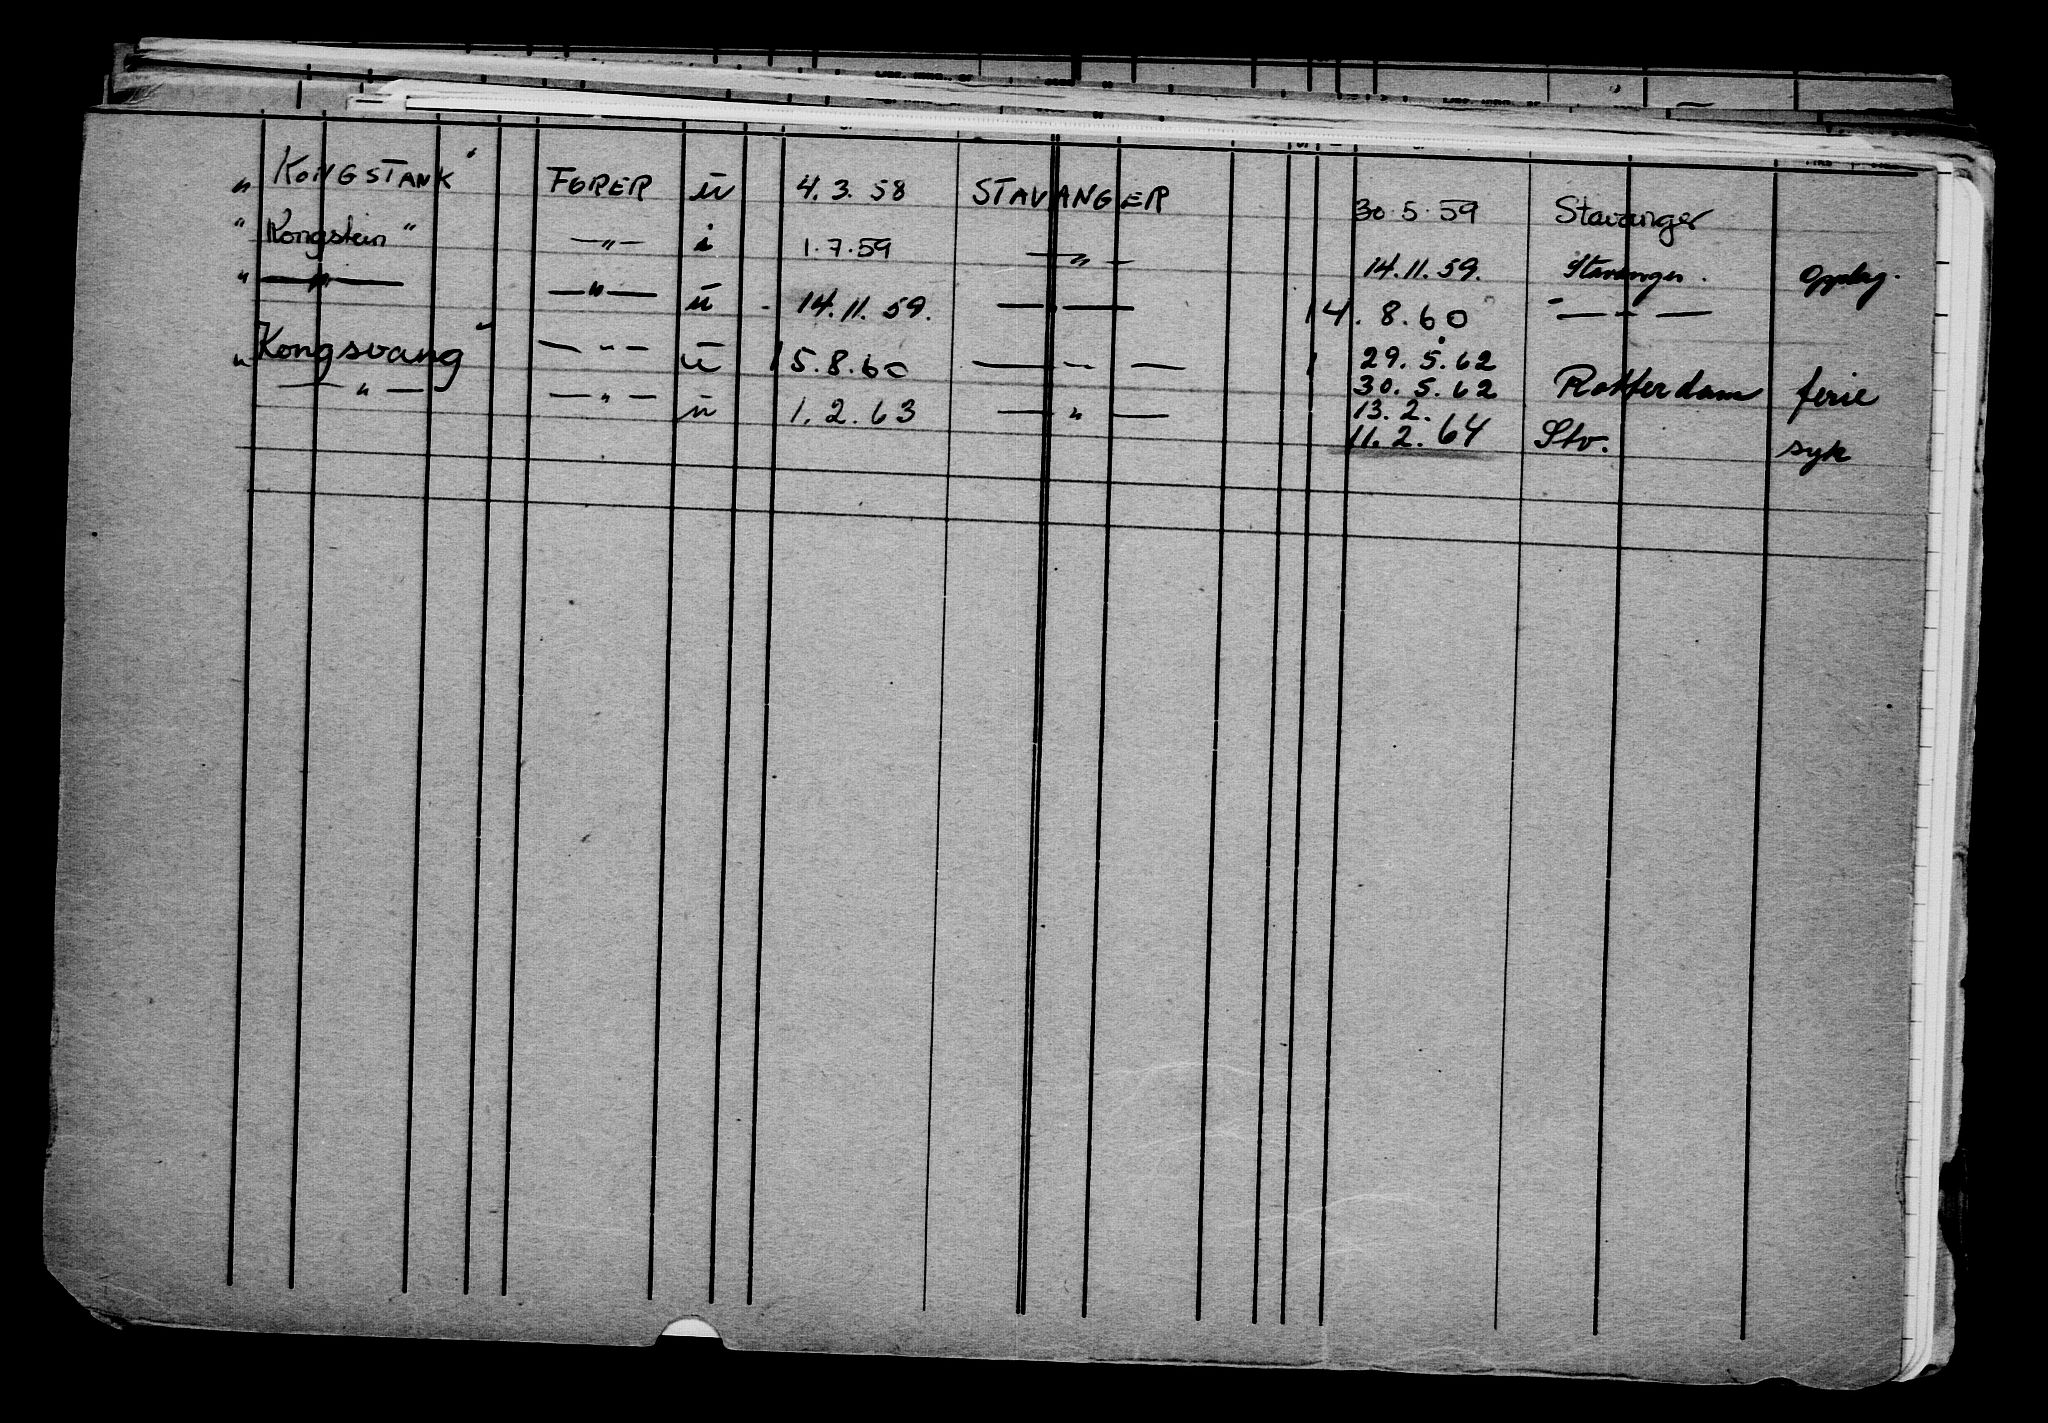 "KONGSTANK" FØRER u 4.3.58 STAVANGER 30.5.59 Stavanger
"Kongstein" — " — i 1.7.59 — " — 14.11.59. Stavanger. Opplag.
" — " — — " — u 14.11.59. — " — 14.8.60 — " —
"Kongsvang" — " — u 15.8.60 — " — 29.5.62
30.5.62 Rotterdam ferie
— " — — " — u 1.2.63 — " — 13.2.
11.2.64 Stv. syk